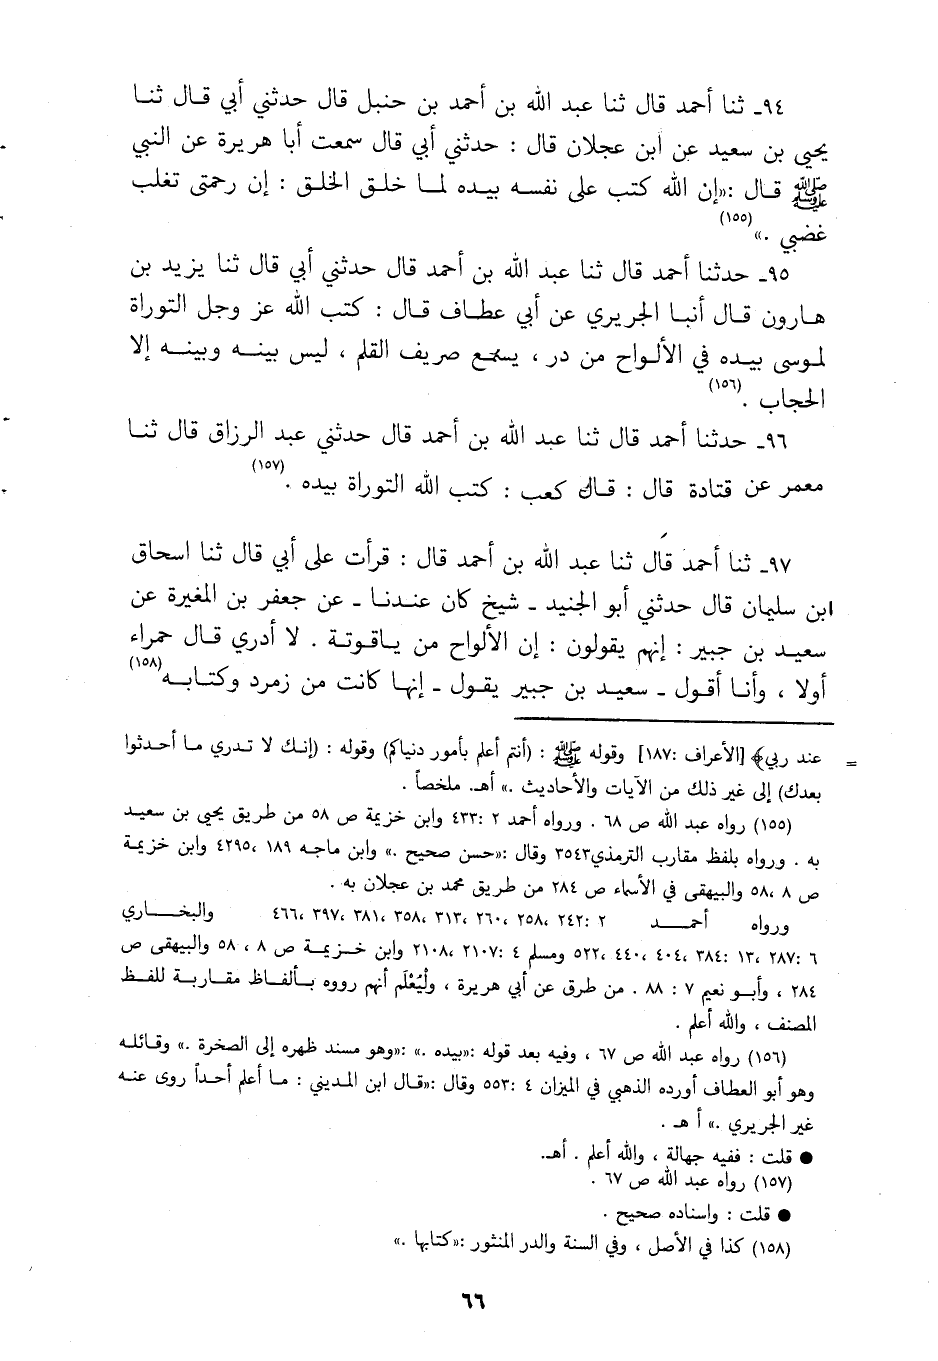 ٩٤ـ ثنا أحمد قال ثنا عبد الله بن أحمد بن حنبل قال حدثني أبي قال ثنا
يحيى بن سعيد عن ابن عجلان قال : حدثني أبي قال سمعت أبا هريرة عن النبي
ﷺ قال :«إن الله كتب على نفسه بيده لما خلق الخلق : إن رحمتي تغلب
غضبي .»(١٥٥)
٩٥ـ حدثنا أحمد قال ثنا عبد الله بن أحمد قال حدثني أبي قال ثنا يزيد بن
هارون قال أنبا الجريري عن أبي عطاف قال : كتب الله عز وجل التوراة
لموسى بيده في الألواح من در ، يسمع صريف القلم ، ليس بينه وبينه إلا
الحجاب .(١٥٦)
٩٦ـ حدثنا أحمد قال ثنا عبد الله بن أحمد قال حدثني عبد الرزاق قال ثنا
معمر عن قتادة قال : قال كعب : كتب الله التوراة بيده .(١٥٧)
٩٧ـ ثنا أحمد قال ثنا عبد الله بن أحمد قال : قرأت على أبي قال ثنا اسحاق
ابن سليمان قال حدثني أبو الجنيد ـ شيخ كان عندنا ـ عن جعفر بن المغيرة عن
سعيد بن جبير : إنهم يقولون : إن الألواح من ياقوتة . لا أدري قال حمراء
أولا ، وأنا أقول ـ سعيد بن جبير يقول ـ إنها كانت من زمرد وكتابه(١٥٨)
= عند ربي﴾ [الأعراف :١٨٧] وقوله ﷺ : (أنتم أعلم بأمور دنياكم) وقوله : (إنك لا تدري ما أحدثوا
بعدك) إلى غير ذلك من الآيات والأحاديث .» أهـ. ملخصاً .
(١٥٥) رواه عبد الله ص ٦٨ . ورواه أحمد ٢ :٤٣٣ وابن خزيمة ص ٥٨ من طريق يحيى بن سعيد
به . ورواه بلفظ مقارب الترمذي٣٥٤٣ وقال :«حسن صحيح .» وابن ماجه ١٨٩ ،٤٢٩٥ وابن خزيمة
ص ٨ ،٥٨ والبيهقى في الأسماء ص ٢٨٤ من طريق محمد بن عجلان به .
ورواه أحمد ٢ :٢٤٢ ،٢٥٨ ،٢٦٠ ،٣١٣ ،٣٥٨ ،٣٨١ ،٣٩٧ ،٤٦٦ والبخاري
٦ :٢٨٧ ،١٣ :٣٨٤ ،٤٠٤ ،٤٤٠ ،٥٢٢ ومسلم ٤ :٢١٠٧ ،٢١٠٨ وابن خزيمة ص ٨ ، ٥٨ والبيهقى ص
٢٨٤ ، وأبو نعيم ٧ : ٨٨ . من طرق عن أبي هريرة ، ولْيُعْلَم أنهم رووه بألفاظ مقاربة للفظ
المصنف ، والله أعلم .
(١٥٦) رواه عبد الله ص ٦٧ ، وفيه بعد قوله :«بيده .» :«وهو مسند ظهره إلى الصخرة .» وقائله
وهو أبو العطاف أورده الذهبي في الميزان ٤ :٥٥٣ وقال :«قال ابن المديني : ما أعلم أحداً روى عنه
غير الجريري .» أ هـ .
● قلت : ففيه جهالة ، والله أعلم . أهـ.
(١٥٧) رواه عبد الله ص ٦٧ .
● قلت : وإسناده صحيح .
(١٥٨) كذا في الأصل ، وفي السنة والدر المنثور :«كتابها .»
٦٦